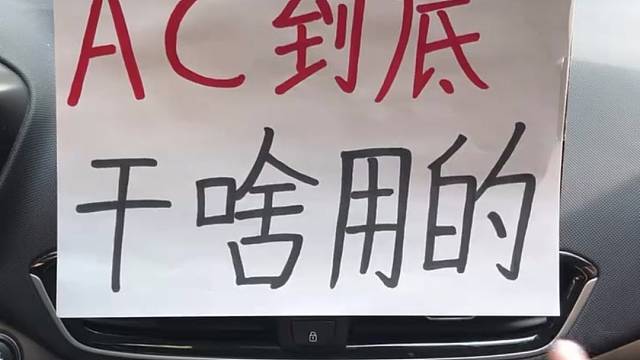 AC到底
干啥用的